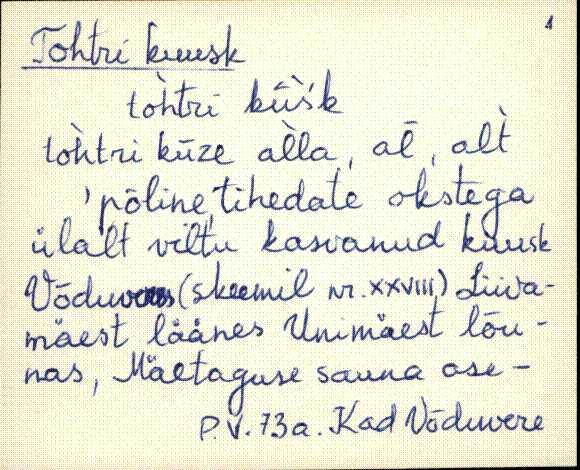 1
Tohtri kuusk
tòhtri kū̀s'k
tòhtri kūze àlla, al̄, alt̀
'põline, tihedate okstega
ülalt viltu kasvanud kuusk
Võduveres (skeemil nr. XXVIII) Liiva-
mäest läänes Unimäest lõu-
nas, Mäetaguse sauna ase-
P.V. 73a. Kad Võduvere